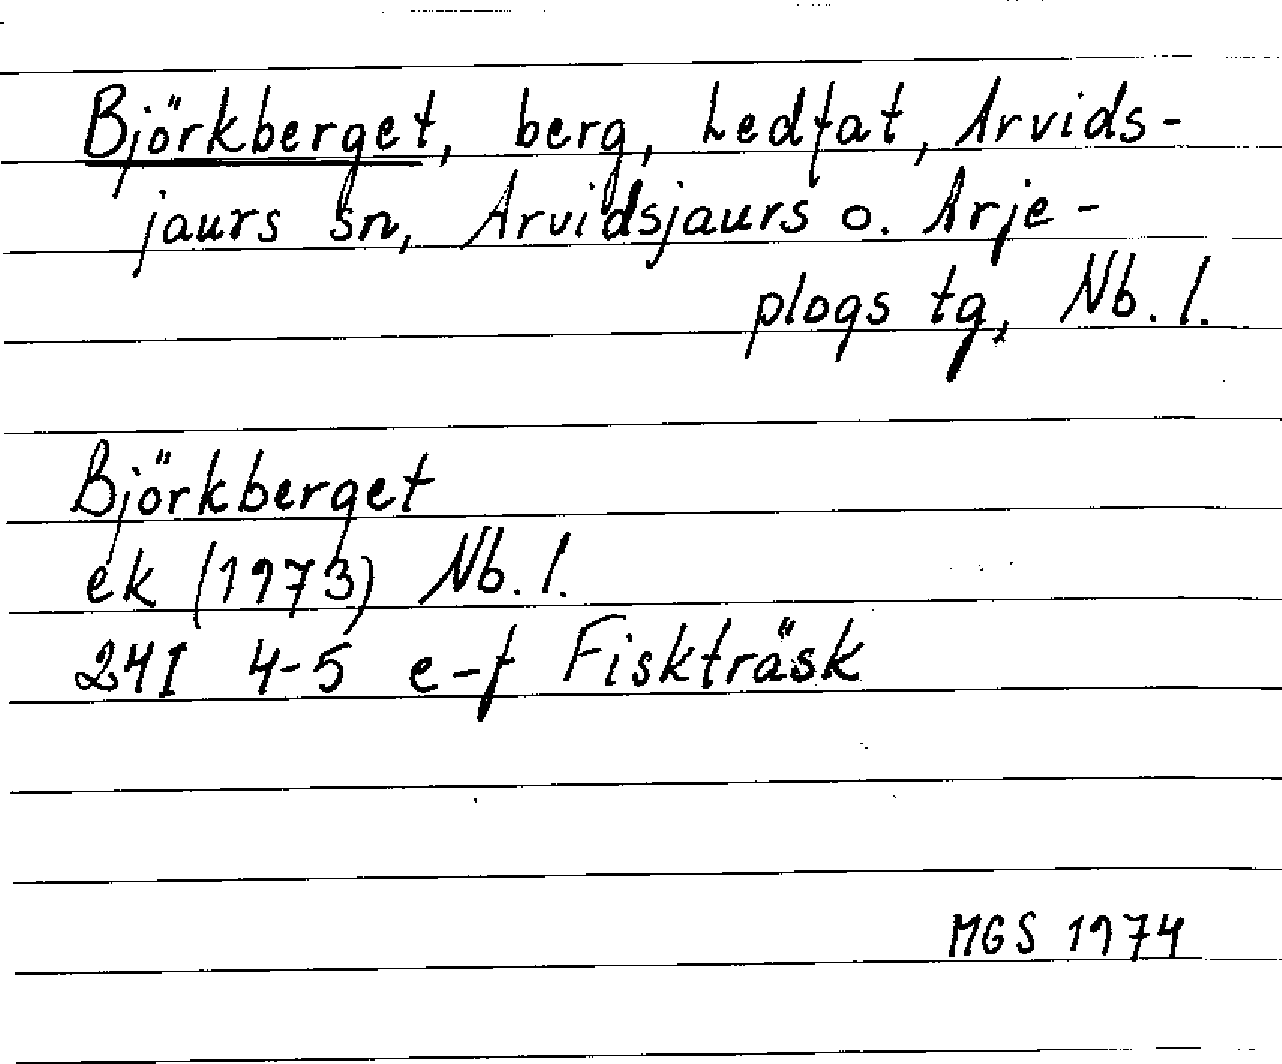 Björkberget, berg, Ledfat, Arvids-
jaurs sn, Arvidsjaurs o. Arje-
plogs tg, Nb. l.
Björkberget
ek (1973) Nb. l.
24I 4-5 e-f Fiskträsk
MGS 1974